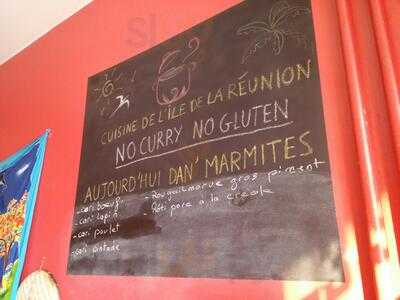 CUISINE DE L'ÎLE DE LA RÉUNION
NO CURRY NO GLUTEN
AUJOURD'HUI DAN' MARMITES
- cari boeuf
- cari lapin
- cari poulet
- cari pintade
- Rougail morue gros piment
- Rôti porc à la créole